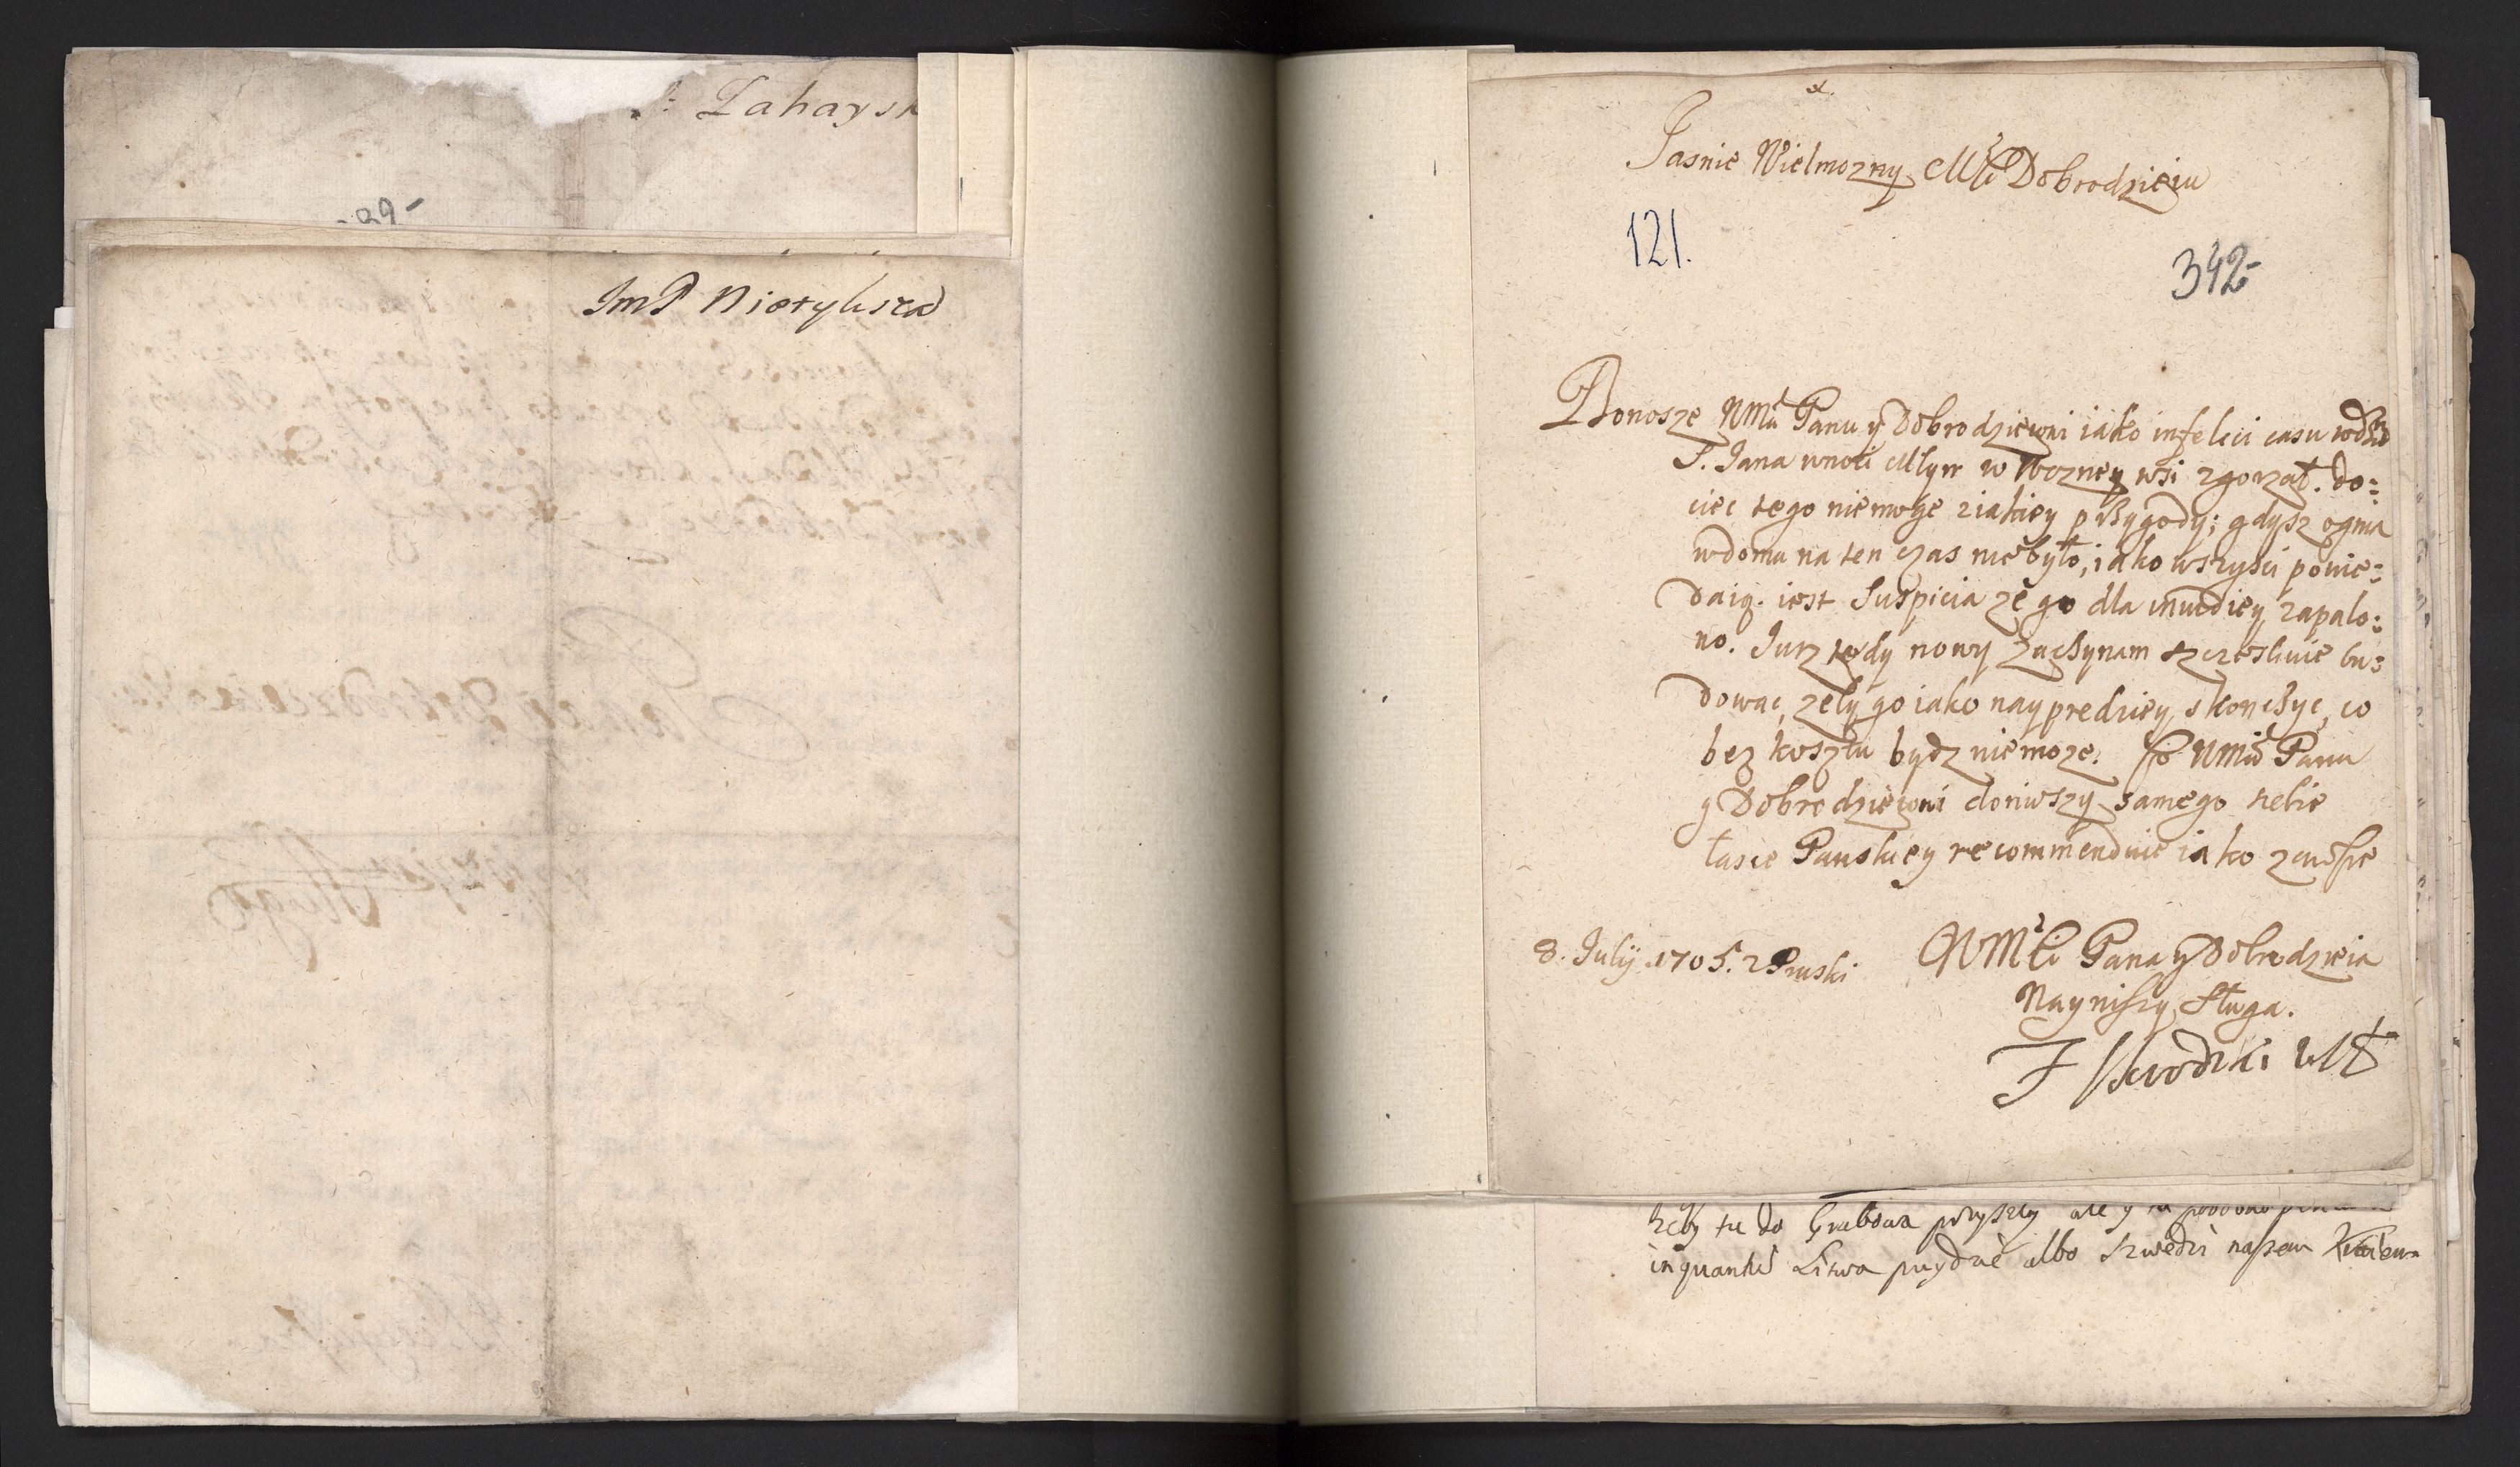 Lahaysk
-39-
ImP Nierybisza
Jasnie Wielmozny Mći Dobrodzieiu
121.
342-
Donosze WMći Panu y Dobrodzieiowi iako infelici casu wdzień
S. Jana wnoci Młyn w wsi zgorzał. do=
ciec tego niemoge ziakiey przygody; gdysz ognia
wdomu na ten czas niebyło, iako wszysci powie=
daią. iest suspicia ze go dla inuidiey zapalo=
no. Jurz tedy nowy zaczynam szczesliwie bu=
dowac, zeby go iako naypredziey skonczyc, co
bez kosztu bydz niemoze. To WMći Panu
y Dobrodzieiowi doniuszy samego siebie
łasce Panskiey recommenduie iako zawsze
8. July 1705. z Pruski
WMći Pana y Dobrodzieia
Nayniszy Sługa.
F Skrodzki
zeby tu do Grabowa przyszły ale y tu podobno
inquantu Litwa przydzie albo Szwedzi